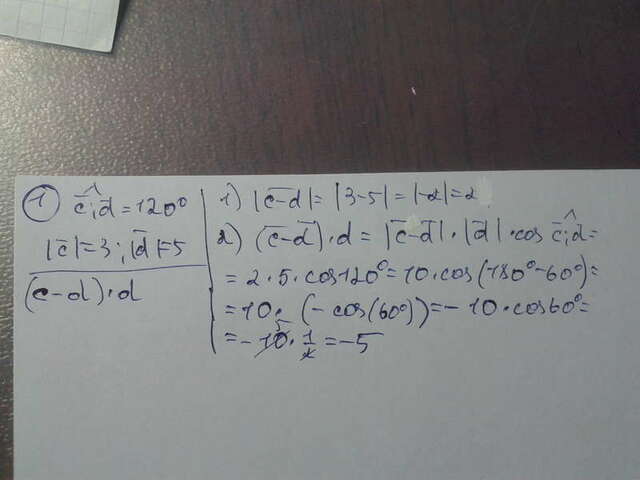 ① c̄;d̄^ = 120°
|c̄|=3; |d̄|=5
(c-d)·d
1) |c̄-d̄| = |3-5| = |-2| = 2
2) (c̄-d̄)·d = |c̄-d̄|·|d̄|·cos c̄;d̄^ =
= 2·5·cos120° = 10·cos(180°-60°) =
= 10·(-cos(60°)) = -10·cos60° =
= -10·1/2 = -5